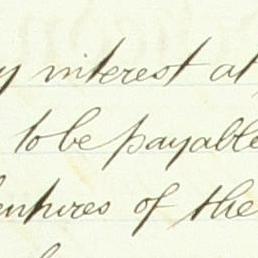 y interest at
to be payable
entures of the